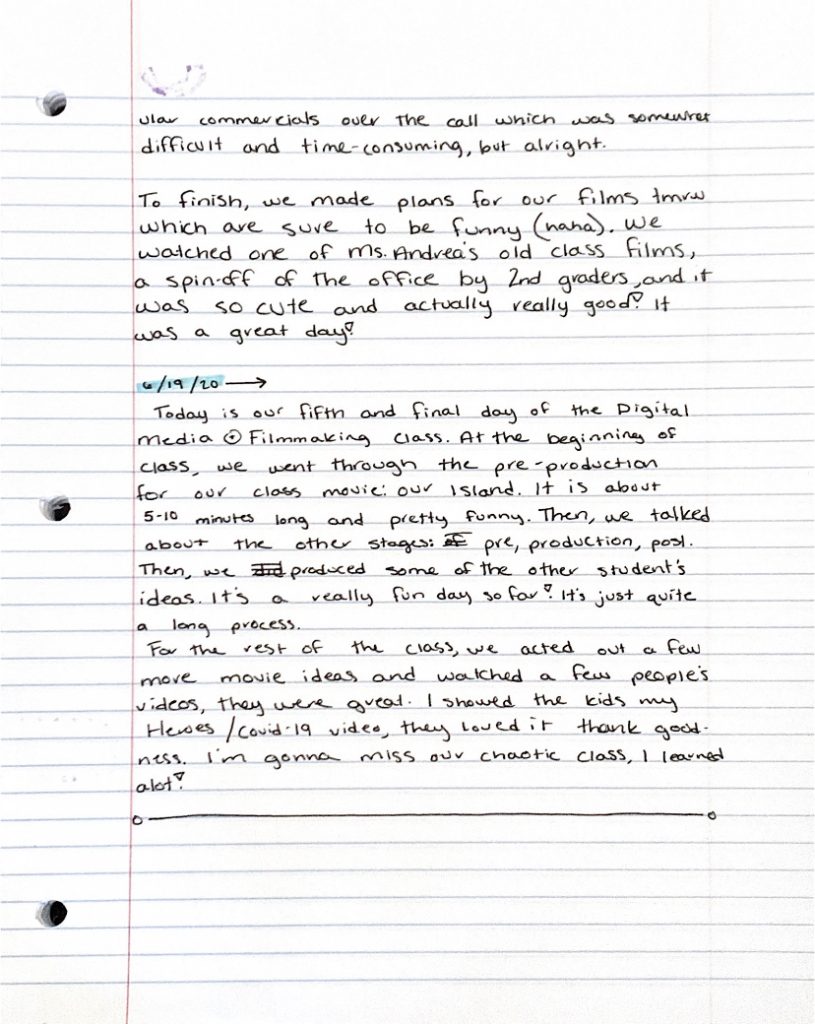 ular commercials over the call which was somewhat
difficult and time-consuming, but alright.
To finish, we made plans for our films tmrw
which are sure to be funny (haha). We
watched one of Ms. Andrea's old class films,
a spin-off of the office by 2nd graders, and it
was so cute and actually really good! It
was a great day!
6/19/20 →
Today is our fifth and final day of the Digital
Media + Filmmaking class. At the beginning of
class, we went through the pre-production
for our class movie: our Island. It is about
5-10 minutes long and pretty funny. Then, we talked
about the other stages: pre, production, post.
Then, we produced some of the other student's
ideas. It's a really fun day so far! It's just quite
a long process.
For the rest of the class, we acted out a few
more movie ideas and watched a few people's
videos, they were great. I showed the kids my
Heroes/Covid-19 video, they loved it thank good-
ness. I'm gonna miss our chaotic class, I learned
alot!